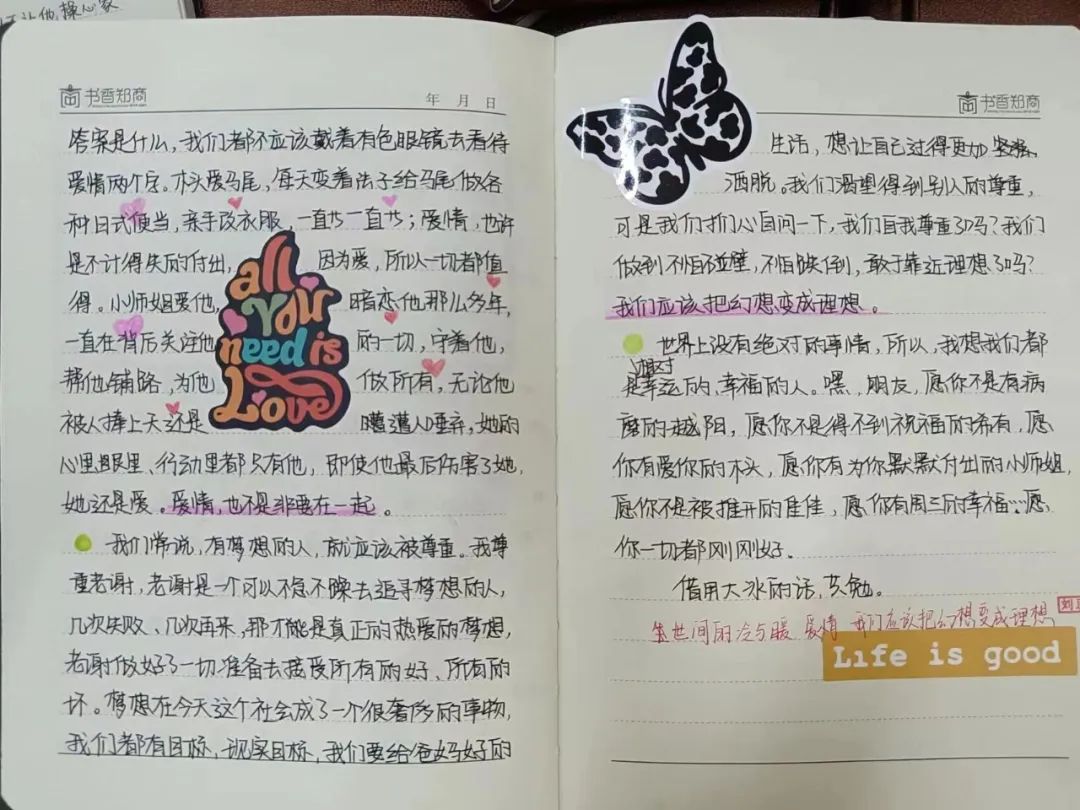 不让他操心家
书香知商
年 月 日
答案是什么,我们都不应该戴着有色眼镜去看待
爱情两个字。木头爱马尾,每天变着法子给马尾做各
种日式便当,亲手改衣服,一直
一直
;爱情,也许
是不计得失的付出,因为爱,所以一切都值
得。小师姐爱他,暗恋他那么多年,
一直在背后关注他的一切,守着他,
帮他铺路,为他做所有,无论他
被人捧上天还是遭人唾弃,她的
心里眼里、行动里都只有他,即使他最后伤害了她,
她还是爱。爱情,也不是非要在一起。
all
you
need is
Love
我们常说,有梦想的人,就应该被尊重。我尊
重老谢,老谢是一个可以不急不躁去追寻梦想的人,
几次失败、几次再来,那才能是真正的热爱的梦想,
老谢做好了一切准备去接受所有的好、所有的
坏。梦想在今天这个社会成了一个很奢侈的事物,
我们都有目标,现实目标,我们要给爸妈好的
书香知商
生活,想让自己过得更加
洒脱。我们渴望得到别人的尊重,
可是我们扪心自问一下,我们自我尊重了吗?我们
做到不怕碰壁,不怕跌倒,敢于靠近理想了吗?
我们应该把幻想变成理想。
世界上没有绝对的事情,所以,我想我们都
相对
是幸运的,幸福的人。嘿,朋友,愿你不是有病
的越阳,愿你不是得不到祝福的稀有,愿
你有爱你的木头,愿你有为你默默付出的小师姐,
愿你不是被推开的佳佳,愿你有周三的幸福…愿
你一切都刚刚好。
借用大冰的话,共勉。
世间的冷与暖 爱情 我们应该把幻想变成理想
Life is good